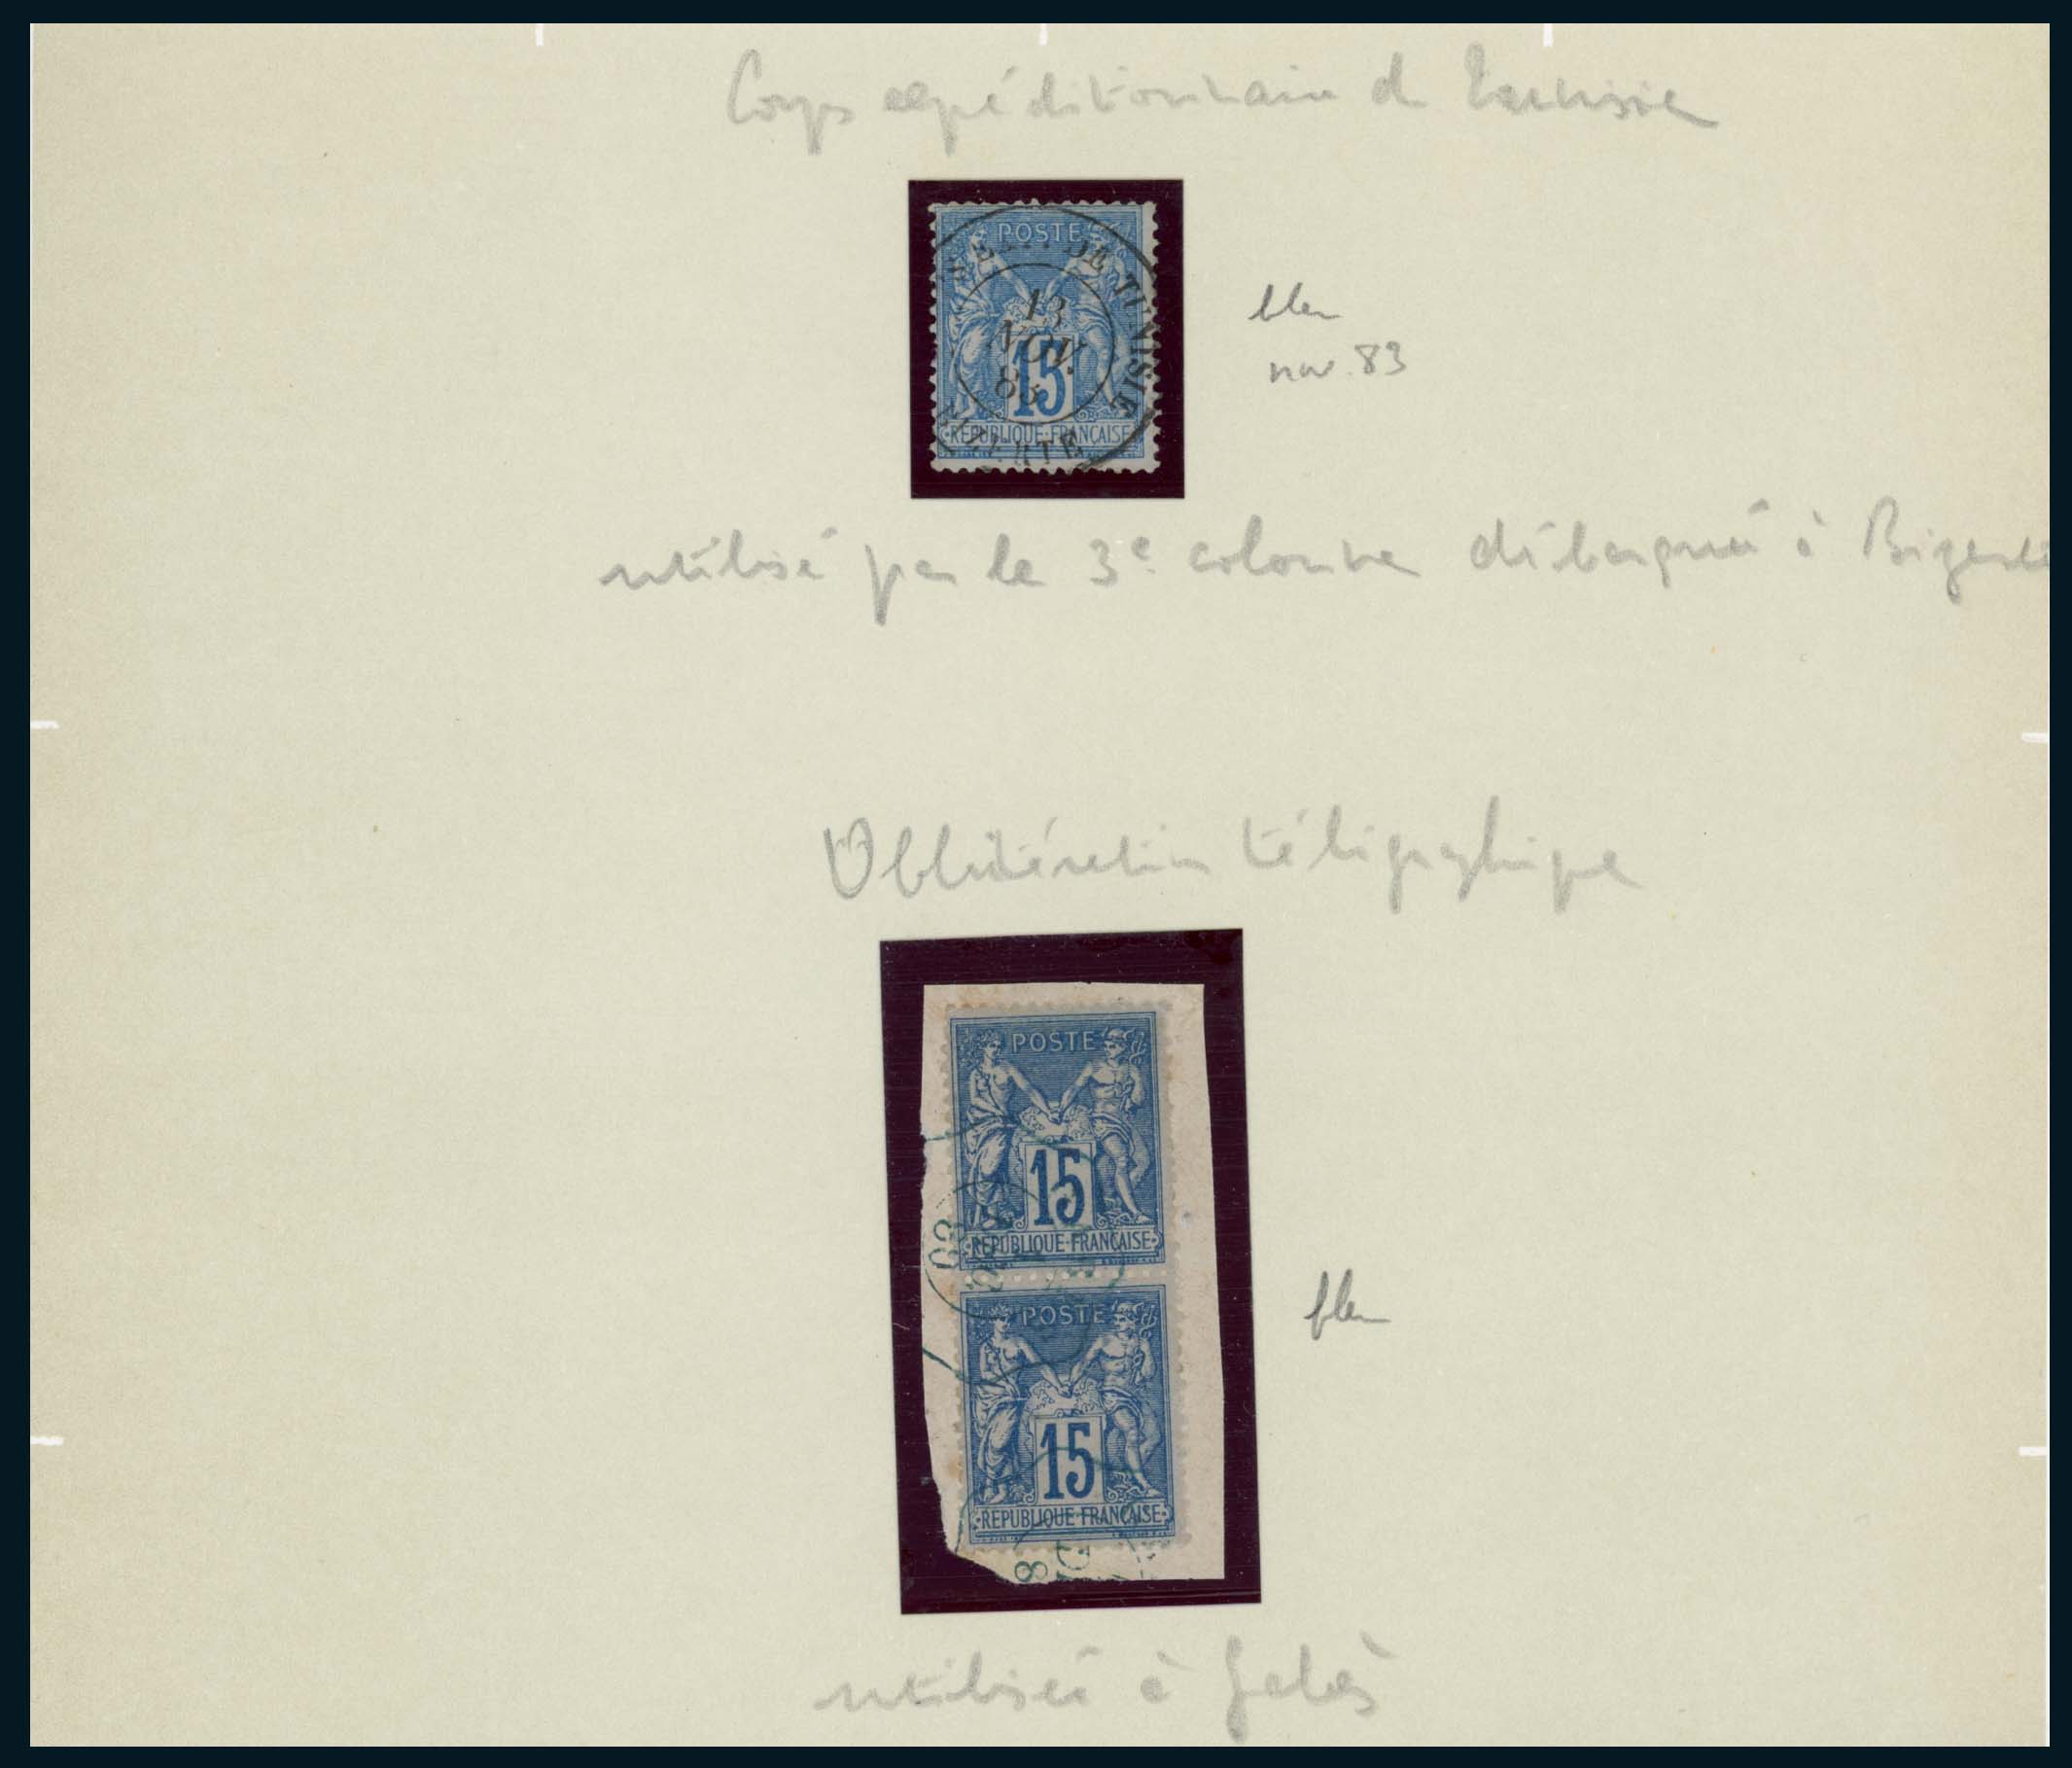 Corps expéditionnaire de Tunisie
POSTE
DE TUNISIE
13
NOV.
83
15
REPUBLIQUE FRANÇAISE
BIZERTE
bleu
nov. 83
utilisé par la 3e colonne débarquée à Bizerte
Oblitération télégraphique
POSTE
15
REPUBLIQUE FRANÇAISE
POSTE
15
REPUBLIQUE FRANÇAISE
8
bleu
utilisée à Gabès